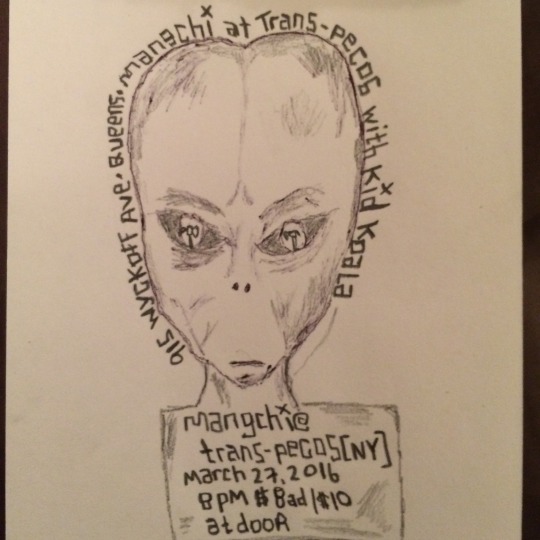 915 Wyckoff Ave. Queens. mangchi at Trans-pecos with Kid Koala
mangchi@
trans-pecos[NY]
march 27, 2016
8pm $8ad|$10
at dooR